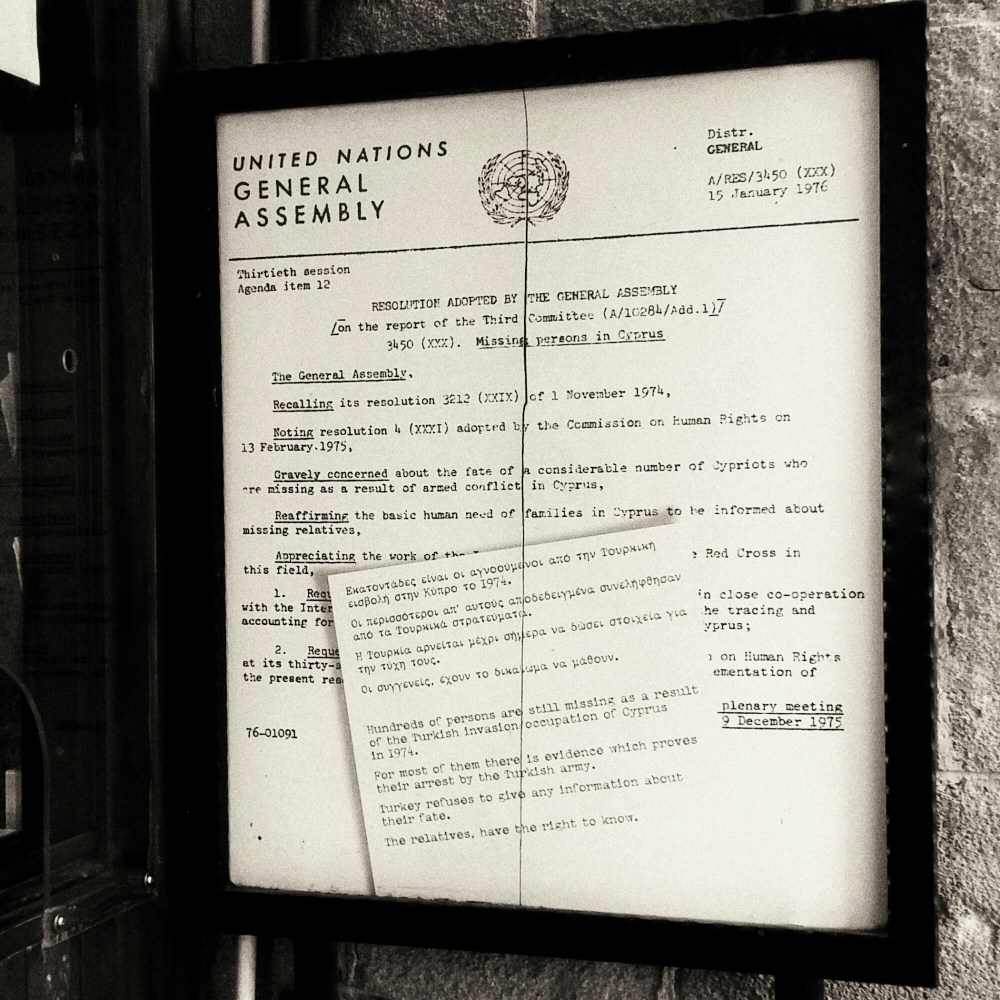 UNITED NATIONS
GENERAL
ASSEMBLY
Distr.
GENERAL
A/RES/3450 (XXX)
15 January 1976
Thirtieth session
Agenda item 12
RESOLUTION ADOPTED BY THE GENERAL ASSEMBLY
/on the report of the Third Committee (A/10284/Add.1)/
3450 (XXX). Missing persons in Cyprus
The General Assembly,
Recalling its resolution 3212 (XXIX) of 1 November 1974,
Noting resolution 4 (XXXI) adopted by the Commission on Human Rights on
13 February.1975,
Gravely concerned about the fate of a considerable number of Cypriots who
are missing as a result of armed conflict in Cyprus,
Reaffirming the basic human need of families in Cyprus to be informed about
missing relatives,
Appreciating the work of the Red Cross in
this field,
1. in close co-operation
with the tracing and
accounting for
2. on Human Rights
at its
the present
plenary meeting
9 December 1975
76-01091
Εκατοντάδες είναι οι αγνοούμενοι από την Τουρκική
εισβολή στην Κύπρο το 1974.
Οι περισσότεροι απ' αυτούς αποδεδειγμένα συνελήφθησαν
από τα Τουρκικά στρατεύματα.
Η Τουρκία αρνείται μέχρι σήμερα να δώσει στοιχεία για
την τύχη τους.
Οι συγγενείς, έχουν το δικαίωμα να μάθουν.
Hundreds of persons are still missing as a result
of the Turkish invasion/occupation of Cyprus
in 1974.
For most of them there is evidence which proves
their arrest by the Turkish army.
Turkey refuses to give any information about
their fate.
The relatives, have the right to know.